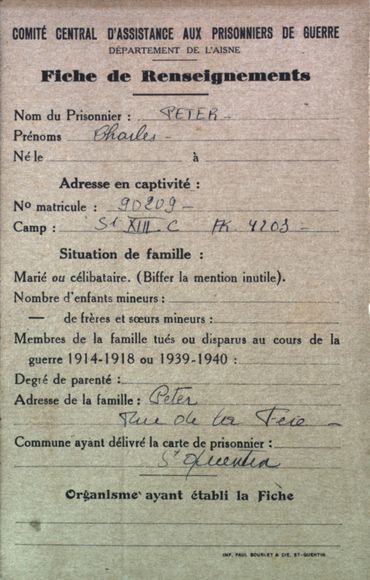 COMITÉ CENTRAL D'ASSISTANCE AUX PRISONNIERS DE GUERRE
DÉPARTEMENT DE L'AISNE
Fiche de Renseignements
Nom du Prisonnier : PETER -
Prénoms Charles -
Né le à
Adresse en captivité :
No matricule : 90209 -
Camp : St XIII C AK 4203 -
Situation de famille :
Marié ou célibataire. (Biffer la mention inutile).
Nombre d'enfants mineurs :
— de frères et sœurs mineurs :
Membres de la famille tués ou disparus au cours de la
guerre 1914-1918 ou 1939-1940 :
Degré de parenté :
Adresse de la famille : Peter
Rue de la Fère -
Commune ayant délivré la carte de prisonnier :
St Quentin
Organisme ayant établi la Fiche
IMP. PAUL BOURLET & CIE, ST-QUENTIN